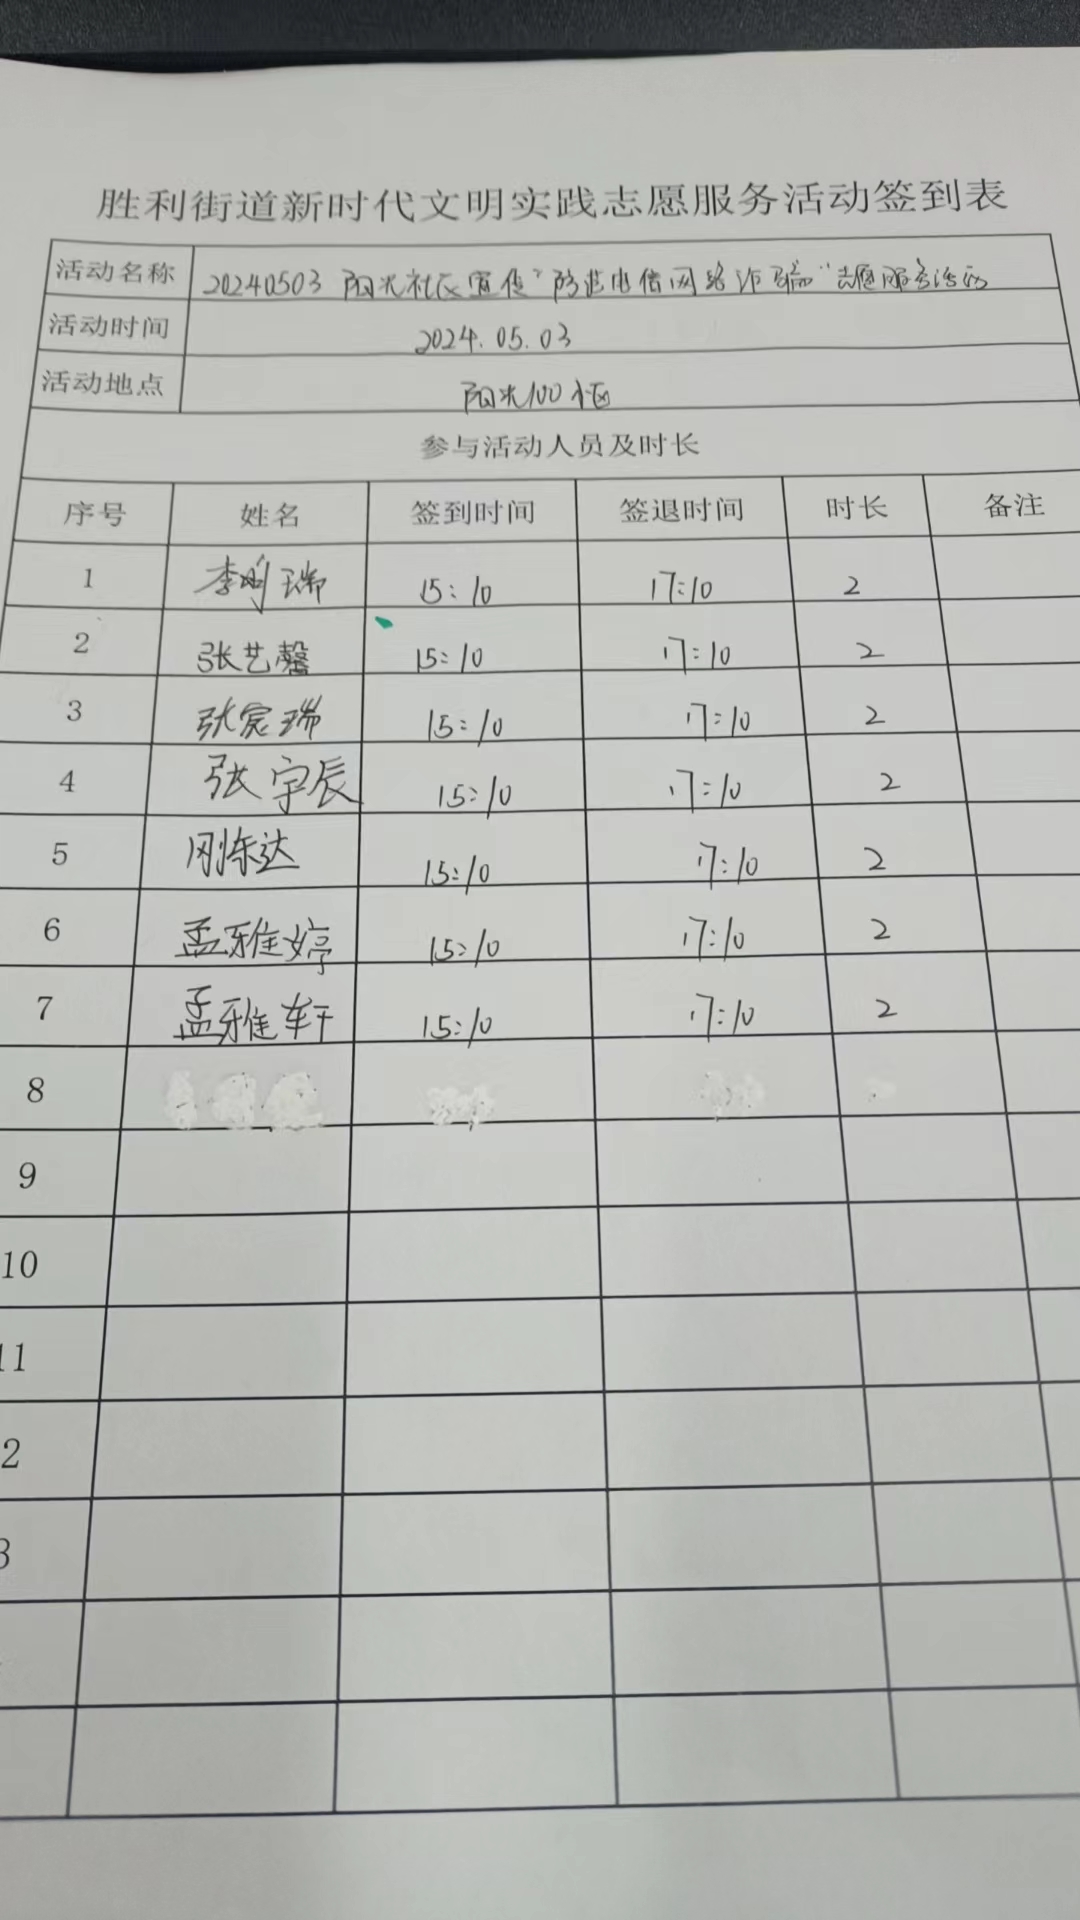 胜利街道新时代文明实践志愿服务活动签到表
活动名称 20240503 阳光社区宣传"防范电信网络诈骗"志愿服务活动
活动时间 2024.05.03
活动地点 阳光100社区
参与活动人员及时长
序号 姓名 签到时间 签退时间 时长 备注
1 李明瑞 15:10 17:10 2
2 张艺馨 15:10 17:10 2
3 张宸瑞 15:10 17:10 2
4 张宇辰 15:10 17:10 2
5 刚栋达 15:10 17:10 2
6 孟雅婷 15:10 17:10 2
7 孟雅轩 15:10 17:10 2
8
9
10
11
2
3